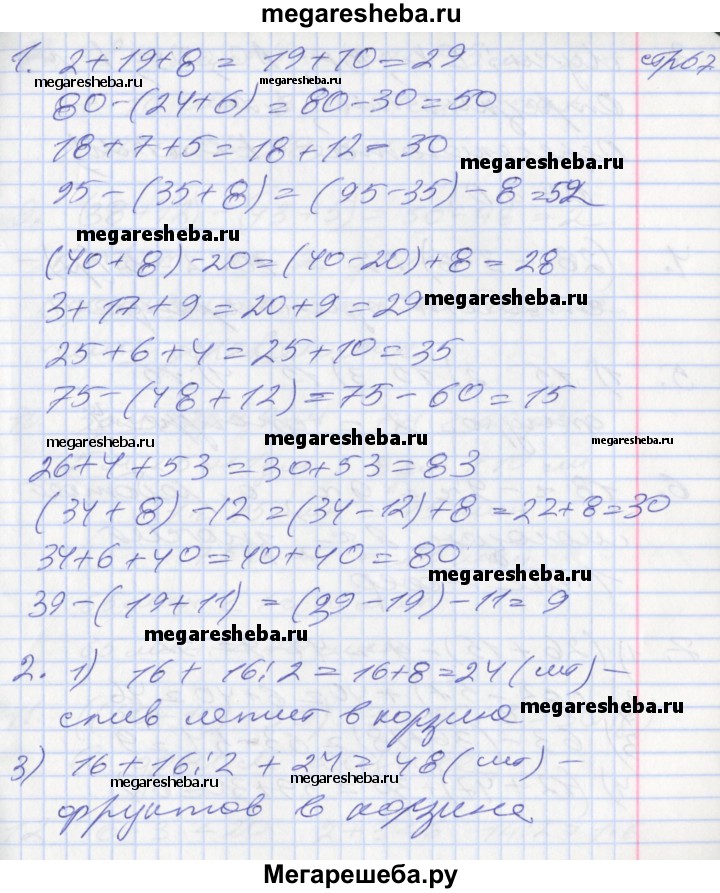 megaresheba.ru
1. 2+19+8 = 19+10=29 стр67
megaresheba.ru megaresheba.ru
80-(24+6)=80-30=50
18+7+5=18+12=30
megaresheba.ru
95-(35+8)=(95-35)-8=52
megaresheba.ru
(40+8)-20=(40-20)+8=28
3+17+9=20+9=29
megaresheba.ru
25+6+4=25+10=35
75-(48+12)=75-60=15
megaresheba.ru megaresheba.ru megaresheba.ru
26+4+53=30+53=83
(34+8)-12=(34-12)+8=22+8=30
34+6+40=40+40=80
megaresheba.ru
39-(19+11)=(39-19)-11=9
megaresheba.ru
2. 1) 16+16:2=16+8=24(шт)-
слив лежит в корзине
megaresheba.ru
3) 16+16:2+24=48(шт)-
megaresheba.ru megaresheba.ru
фруктов в корзине
Мегарешеба.ру